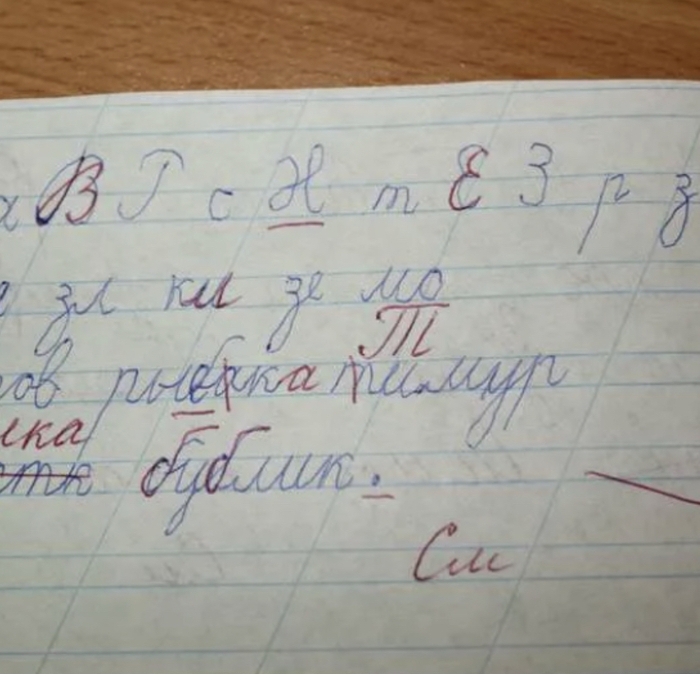 В Г с Н т Е З р з
зл ки зе мо
Т
ов рыбка тимур
ка
бублик.
См